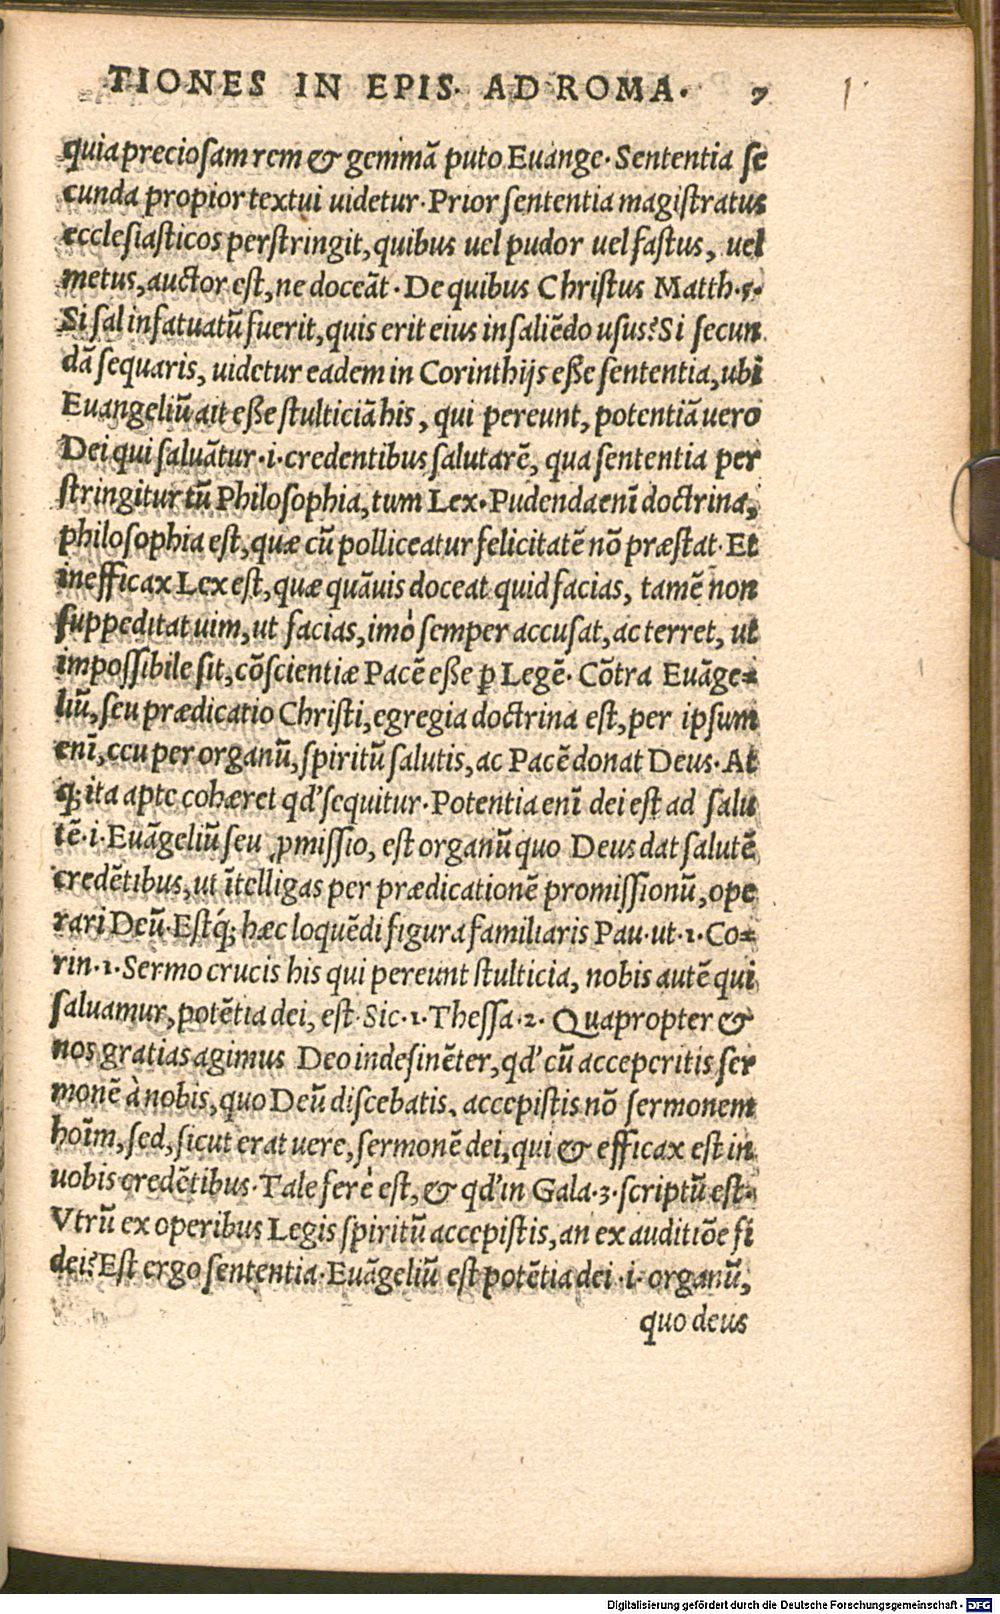 TIONES IN EPIS. AD ROMA. 7
quia preciosam rem & gemmā puto Euange. Sententia se
cunda propior textui uidetur. Prior sententia magistratus
ecclesiasticos perstringit, quibus uel pudor uel fastus, uel
metus, auctor est, ne doceāt. De quibus Christus Matth. 5.
Si sal infatuatū fuerit, quis erit eius in saliēdo usus? Si secun
dā sequaris, uidetur eadem in Corinthijs esse sententia, ubi
Euangeliū ait esse stulticiā his, qui pereunt, potentiā uero
Dei qui saluātur .i. credentibus salutarē, qua sententia per
stringitur tū Philosophia, tum Lex. Pudenda enī doctrina,
philosophia est, quæ cū polliceatur felicitatē nō præstat. Et
inefficax Lex est, quæ quāuis doceat quid facias, tamē non
suppeditat uim, ut facias, imò semper accusat, ac terret, ut
impossibile sit, cōscientiæ Pacē esse ꝑ Legē. Cōtra Euāge-
liū, seu prædicatio Christi, egregia doctrina est, per ipsum
enī, ceu per organū, spiritū salutis, ac Pacē donat Deus. At
q; ita apte cohæret qd' sequitur. Potentia enī dei est ad salu
tē .i. Euāgeliū seu ꝓmissio, est organū quo Deus dat salutē
credētibus, ut ītelligas per prædicationē promissionū, ope
rari Deū. Estq́; hæc loquēdi figura familiaris Pau. ut .1. Co-
rin. 1. Sermo crucis his qui pereunt stulticia, nobis autē qui
saluamur, potētia dei, est. Sic .1. Thessa. 2. Quapropter &
nos gratias agimus Deo indesinēter, qd' cū acceperitis ser
monē à nobis, quo Deū discebatis, accepistis nō sermonem
hoīm, sed, sicut erat uere, sermonē dei, qui & efficax est in
uobis credētibus. Tale ferè est, & qd' in Gala. 3. scriptū est.
Vtrū ex operibus Legis spiritū accepistis, an ex auditiōe fi
dei? Est ergo sententia. Euāgeliū est potētia dei .i. organū,
quo deus
Digitalisierung gefördert durch die Deutsche Forschungsgemeinschaft - DFG